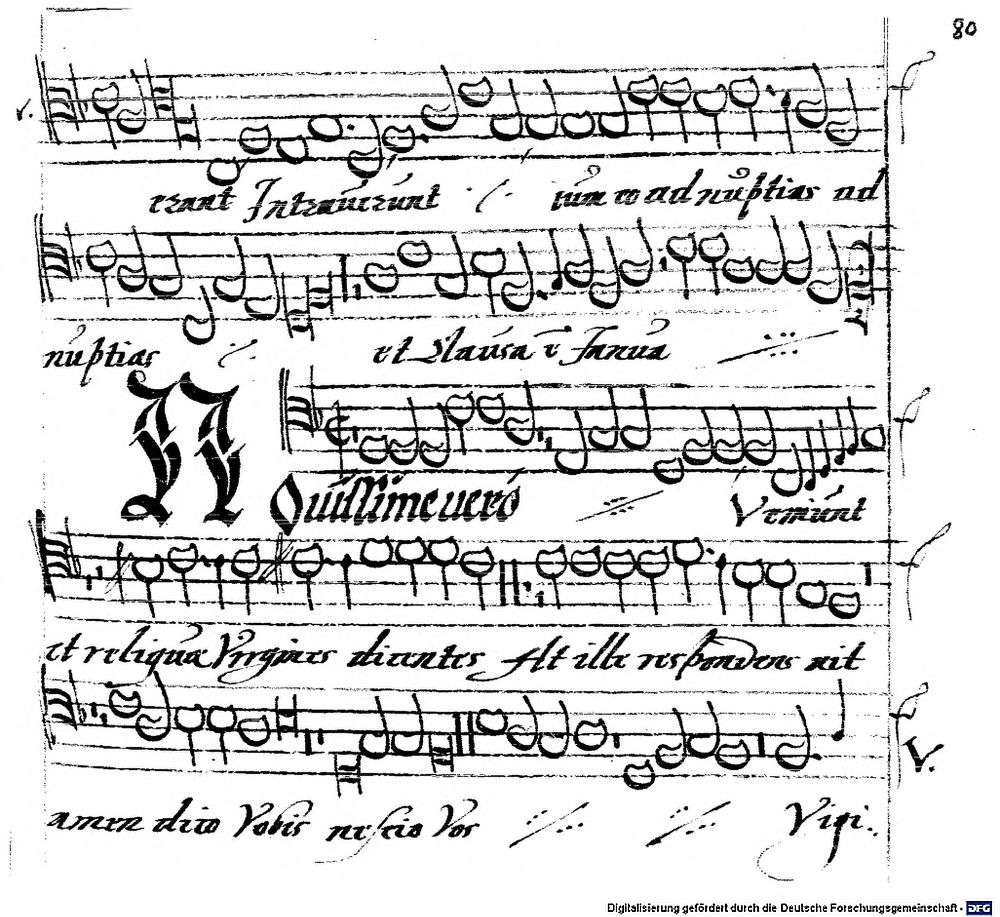 80
v.
erant Intrauerunt ·/· ium eo ad nuptias ad
nuptias ·/· et Clausa ē Ianua
N
Ouissime uero Veniunt
et reliquæ Virgines dicentes At ille respondens ait
amen dico Vobis nescio Vos Vigi.
V.
Digitalisierung gefördert durch die Deutsche Forschungsgemeinschaft - DFG